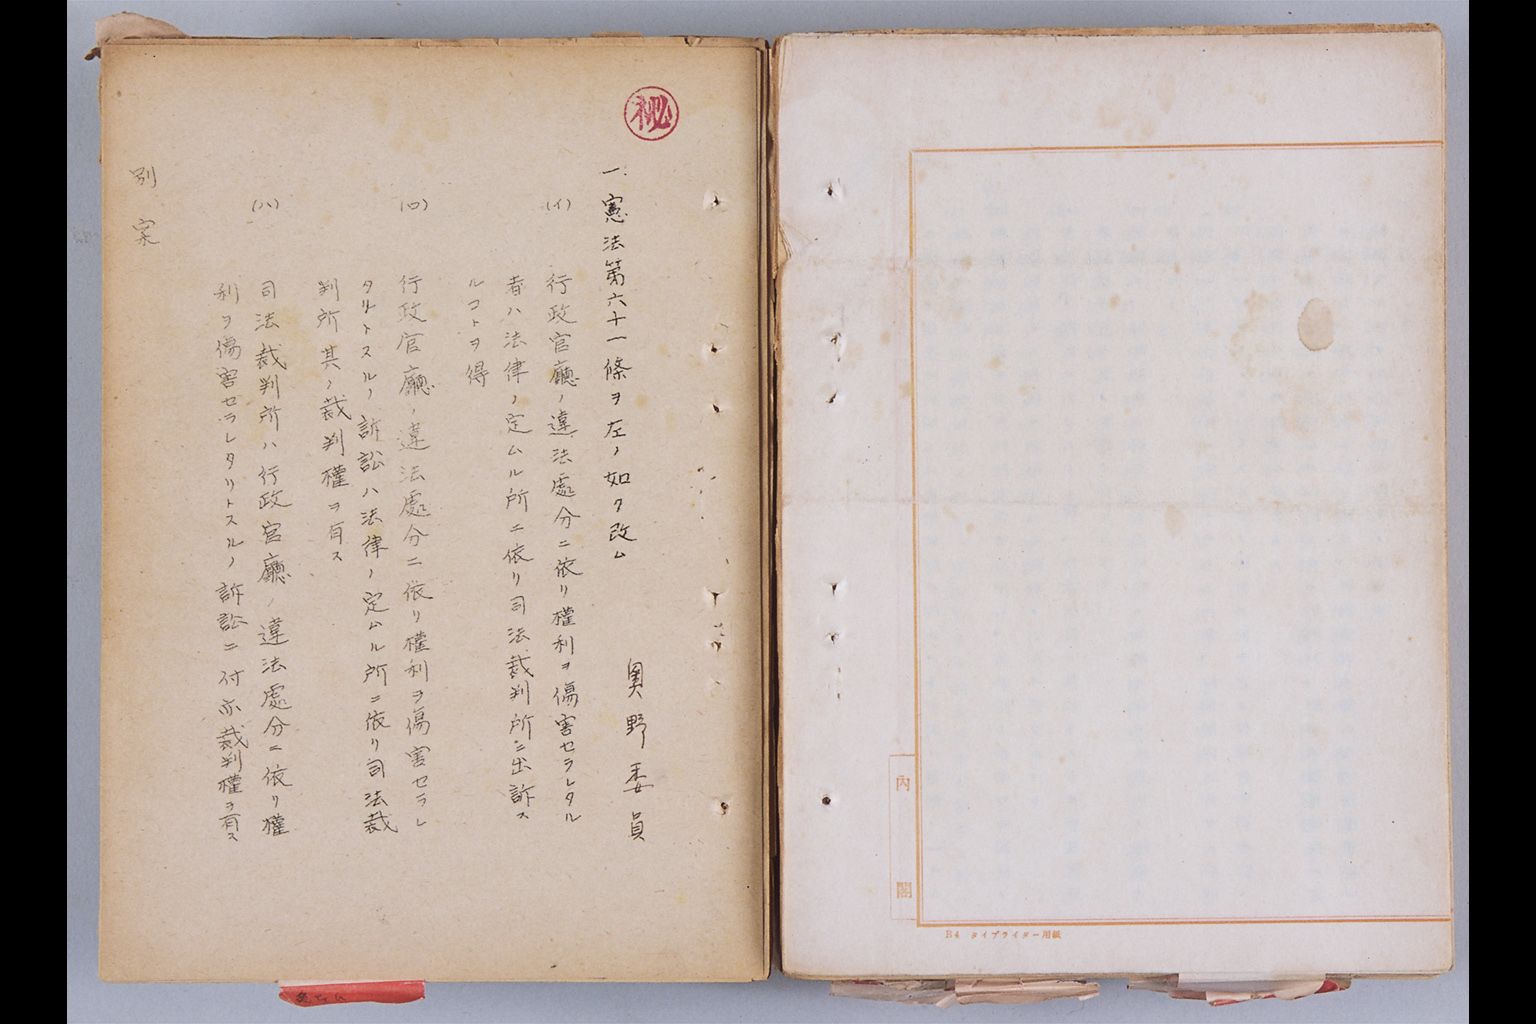 ㊙
奥野委員
一、憲法第六十一條ヲ左ノ如ク改ム
(イ) 行政官廳ノ違法處分ニ依リ權利ヲ傷害セラレタル
者ハ法律ノ定ムル所ニ依リ司法裁判所ニ出訴ス
ルコトヲ得
(ロ) 行政官廳ノ違法處分ニ依リ權利ヲ傷害セラレ
タリトスルノ訴訟ハ法律ノ定ムル所ニ依リ司法裁
判所其ノ裁判權ヲ有ス
(ハ) 司法裁判所ハ行政官廳ノ違法處分ニ依リ權
利ヲ傷害セラレタリトスルノ訴訟ニ付亦裁判權ヲ有ス
別案
內閣
B4 タイプライター用紙